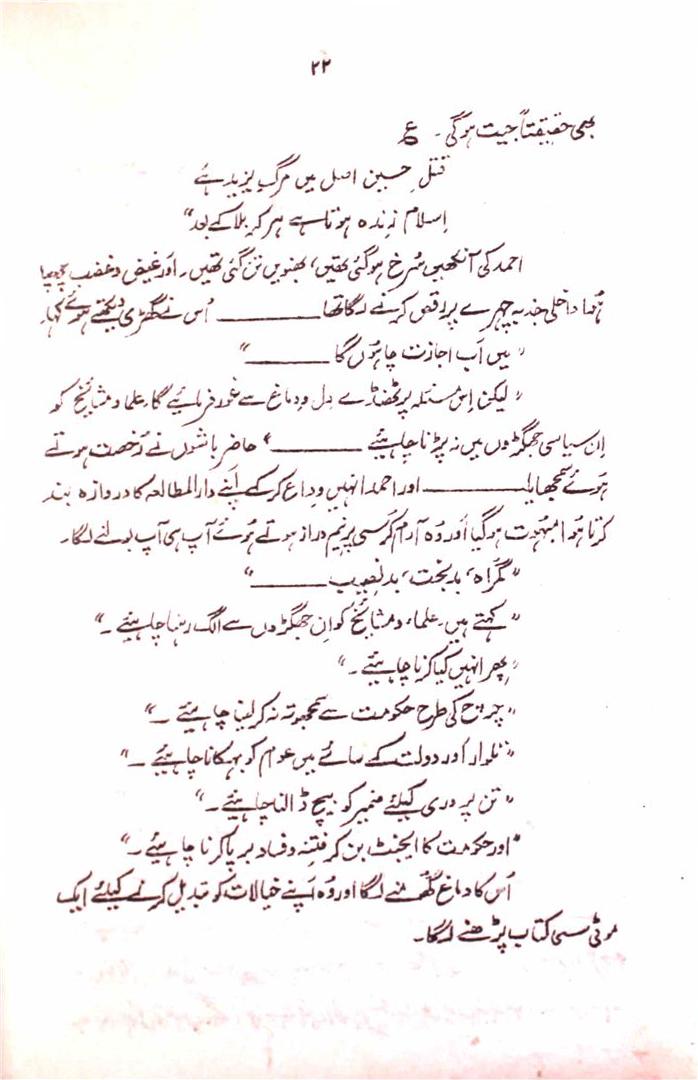 ۲۲
بھی حقیقتاً جیت ہوگی۔ ؏
قتلِ حسین اصل میں مرگِ یزید ہے
اِسلام زندہ ہوتا ہے ہر کربلا کے بعد"
احمد کی آنکھیں سُرخ ہوگئی تھیں، بھنویں تن گئی تھیں۔ اور غیض و غضب چھپا
ہُوا داخلی جذبہ چہرے پر رقص کرنے لگا تھا ــــــــ اُس نے گھڑی دیکھتے ہوئے کہا۔
"میں اَب اجازت چاہُوں گا ــــــــ"
"لیکن اِس مسئلہ پر ٹھنڈے دِل و دماغ سے غور فرمائیے گا، علماء و مشائخ کو
اِن سیاسی جھگڑوں میں نہ پڑنا چاہئیے ــــــــ" حاضر باشوں نے رُخصت ہوتے
ہوئے سمجھایا! ــــــــ اور احمد انہیں وداع کر کے اَپنے دارالمطالعہ کا دروازہ بند
کرتا ہُوا مبہُوت ہوگیا اَور وُہ آرام کرسی پر نیم دراز ہوتے ہُوئے آپ ہی آپ بولنے لگا۔
"گمراہ، بدبخت، بدنصیب ــــــــ"
"کہتے ہیں۔ علماء و مشائخ کو اِن جھگڑوں سے الگ رہنا چاہئیے۔"
"پھر انہیں کیا کرنا چاہئیے۔"
"چرچ کی طرح حکومت سے سمجھوتہ نہ کرلینا چاہئیے ۔"
"تلوار اَور دولت کے سائے میں عوام کو بہکانا چاہئیے ۔"
"تن پروری کیلئے ضمیر کو بیچ ڈالنا چاہئیے۔"
"اور حکومت کا ایجنٹ بن کر فتنہ و فساد برپا کرنا چاہئیے۔"
اُس کا دماغ گھُمنے لگا اور وُہ اَپنے خیالات کو تبدیل کرنے کیلئے ایک
موٹی سی کتاب پڑھنے لگا۔